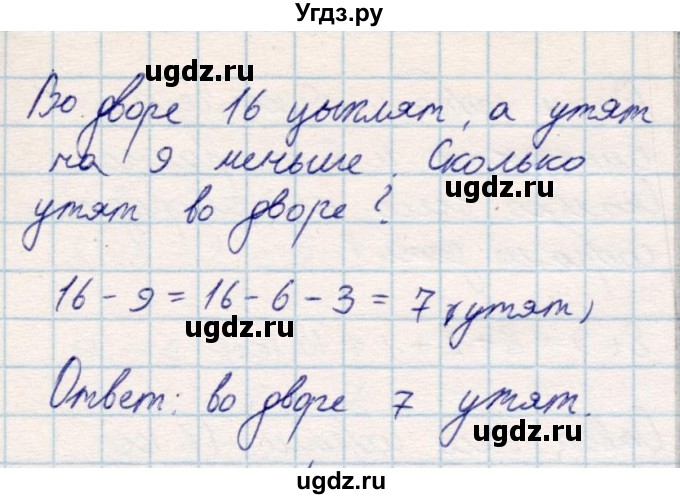 Угдз.ру
ugdz.ru
Во дворе 16 цыплят, а утят
на 9 меньше. Сколько
утят во дворе?
ugdz.ru
16 - 9 = 16 - 6 - 3 = 7 (утят)
ugdz.ru
Ответ: во дворе 7 утят.
ugdz.ru
ugdz.ru